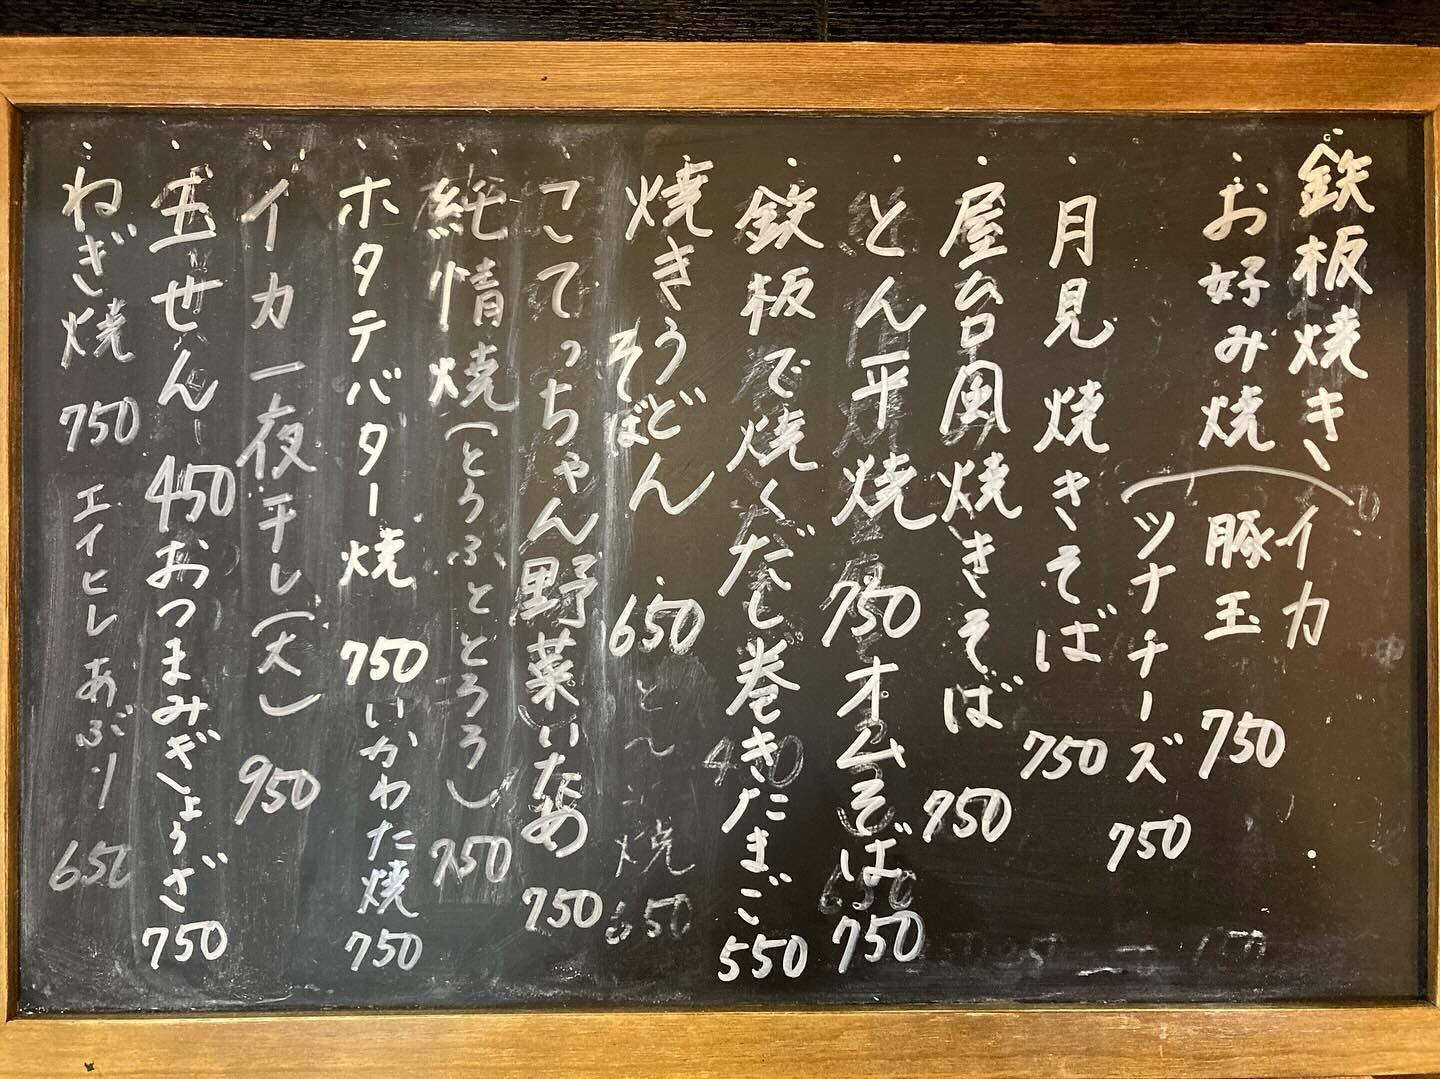 鉄板焼き
お好み焼
イカ
豚玉 750
ツナチーズ 750
月見焼きそば 750
屋台風焼きそば 750
とん平焼 750
オムそば 750
鉄板で焼くだし巻きたまご 550
焼きうどん 650
そばん
こてっちゃん野菜いため 750
純情焼(とうふととろろ) 750
ホタテバター焼 750
いかわた焼 750
イカ一夜干し(大) 950
玉せん 450
おつまみぎょうざ 750
ねぎ焼 750
エイヒレあぶり 650